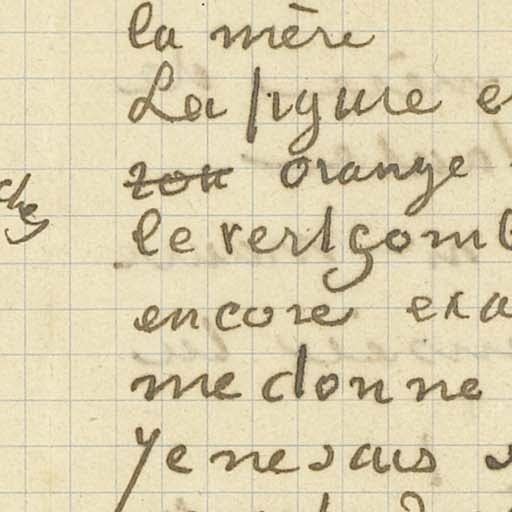 la mère
La figure e
orange
le vert gomb
encore exa
me donne
Je ne sais